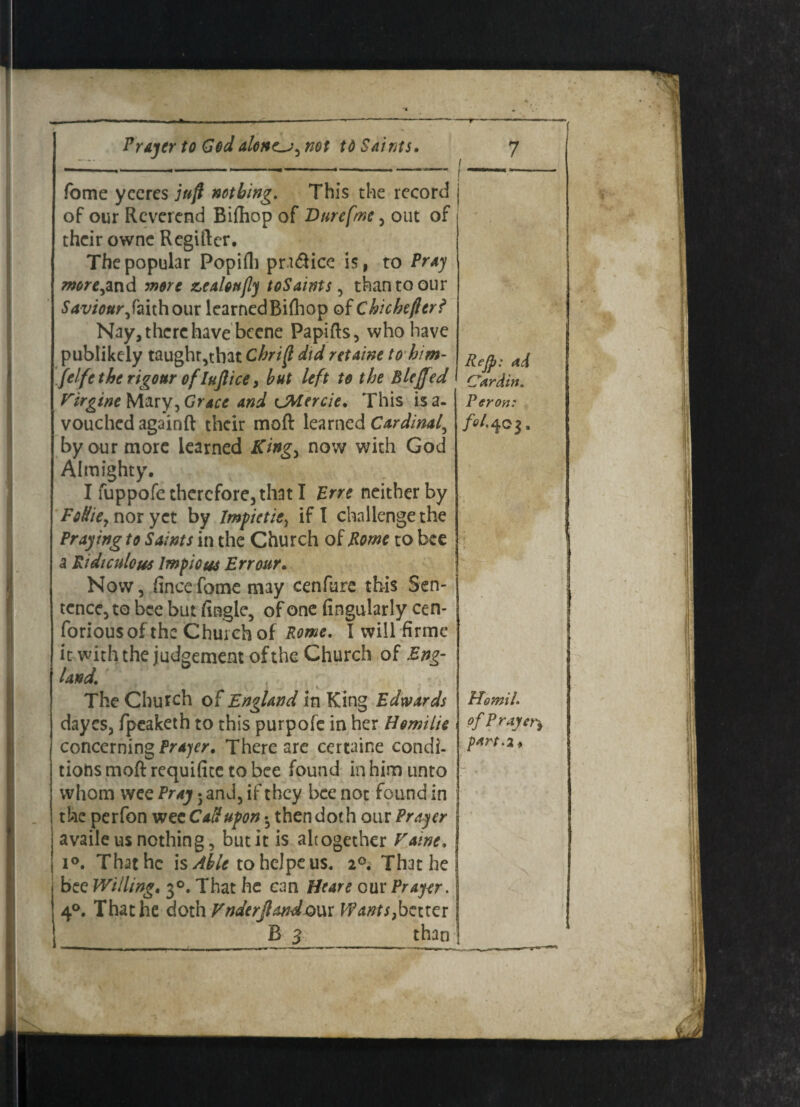 Prayer to God alone, not to Saints. 7
ſome yeeres juſt nothing. This the record
of our Reverend Biſhop of Dureſme, out of
their owne Regiſter.
The popular Popiſh practice is, to Pray
more, and more zealouſly to Saints, than to our
Saviour, ſaith our learned Biſhop of Chicheſter?
Nay, there have beene Papiſts, who have
publikely taught, that Chriſt did retaine to him-
ſelfe the rigour of Iuſtice, but left to the Bleſſed
Virgine Mary, Grace and Mercie. This is a-
vouched againſt their moſt learned Cardinal,
by our more learned King, now with God
Almighty.
I ſuppoſe therefore, that I Erre neither by
Follie, nor yet by Impietie, if I challenge the
Praying to Saints in the Church of Rome to bee
a Ridiculous Impious Errour.
Now, ſince ſome may cenſure this Sen-
tence, to bee but ſingle, of one ſingularly cen-
ſorious of the Church of Rome. I will firme
it with the judgement of the Church of Eng-
land.
The Church of England in King Edwards
dayes, ſpeaketh to this purpoſe in her Homilie
concerning Prayer. There are certaine condi-
tions moſt requiſite to bee found in him unto
whom wee Pray; and, if they bee not found in
the perſon wee Call upon; then doth our Prayer
availe us nothing, but it is altogether Vaine.
1º. That he is Able to helpe us. 2º. That he
bee Willing. 3º. That he can Heare our Prayer.
4º. That he doth Vnderſtand our Wants, better
B 3 than
Reſp: ad
Cardin.
Peron:
fol. 403.
Homil.
of Prayer,
part. 2,